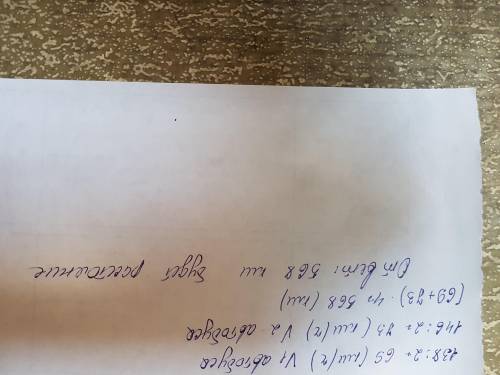 138:2=69 (км/ч) V1 автобуса
146:2=73 (км/ч) V2 автобуса
(69+73)·4=568 (км)
Ответ: 568 км будет расстояние